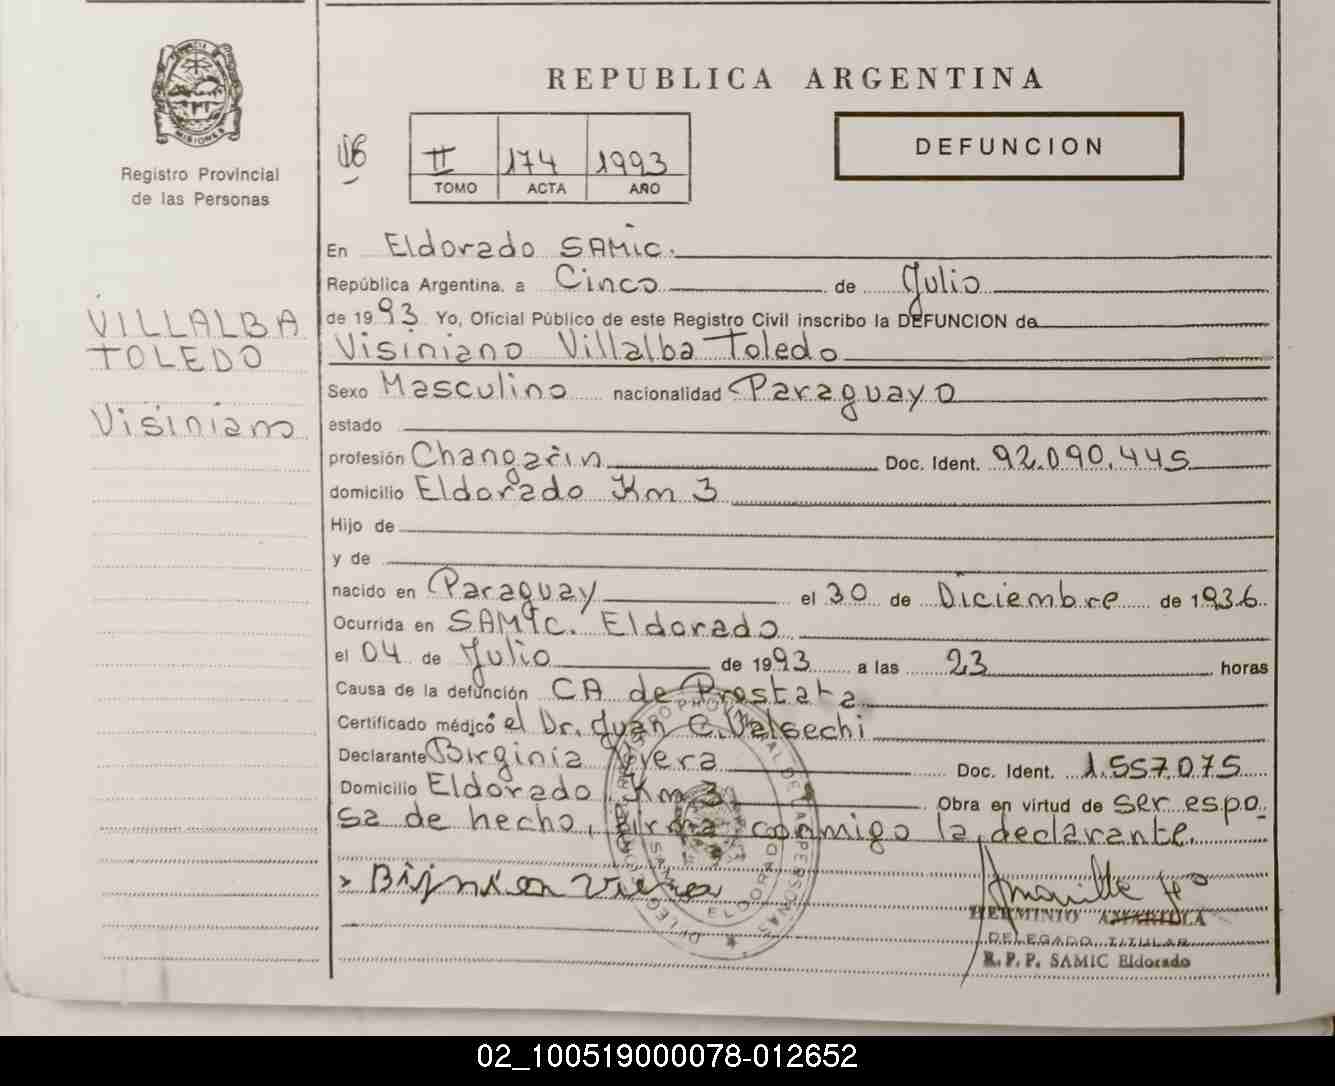 REPUBLICA ARGENTINA
MISIONES
Registro Provincial
de las Personas
II 174 1993
TOMO ACTA AÑO
DEFUNCION
VILLALBA
TOLEDO
Visiniano
En Eldorado SAMIC.
República Argentina, a Cinco de Julio
de 1993 Yo, Oficial Público de este Registro Civil inscribo la DEFUNCION de
Visiniano Villalba Toledo
Sexo Masculino nacionalidad Paraguayo
estado
profesión Changarin Doc. Ident. 92.090.445
domicilio Eldorado Km 3
Hijo de
y de
nacido en Paraguay el 30 de Diciembre de 1936
Ocurrida en SAMIC. Eldorado
el 04 de Julio de 1993 a las 23 horas
Causa de la defunción CA de Prostata
Certificado médico el Dr. Juan C. Valsechi
Declarante Birginia Vera Doc. Ident. 1.557.075
Domicilio Eldorado Km 3 Obra en virtud de ser espo
sa de hecho, firma conmigo la declarante.
HERMINIO AMARILLA
DELEGADO TITULAR
R. P. P. SAMIC Eldorado
02_100519000078-012652